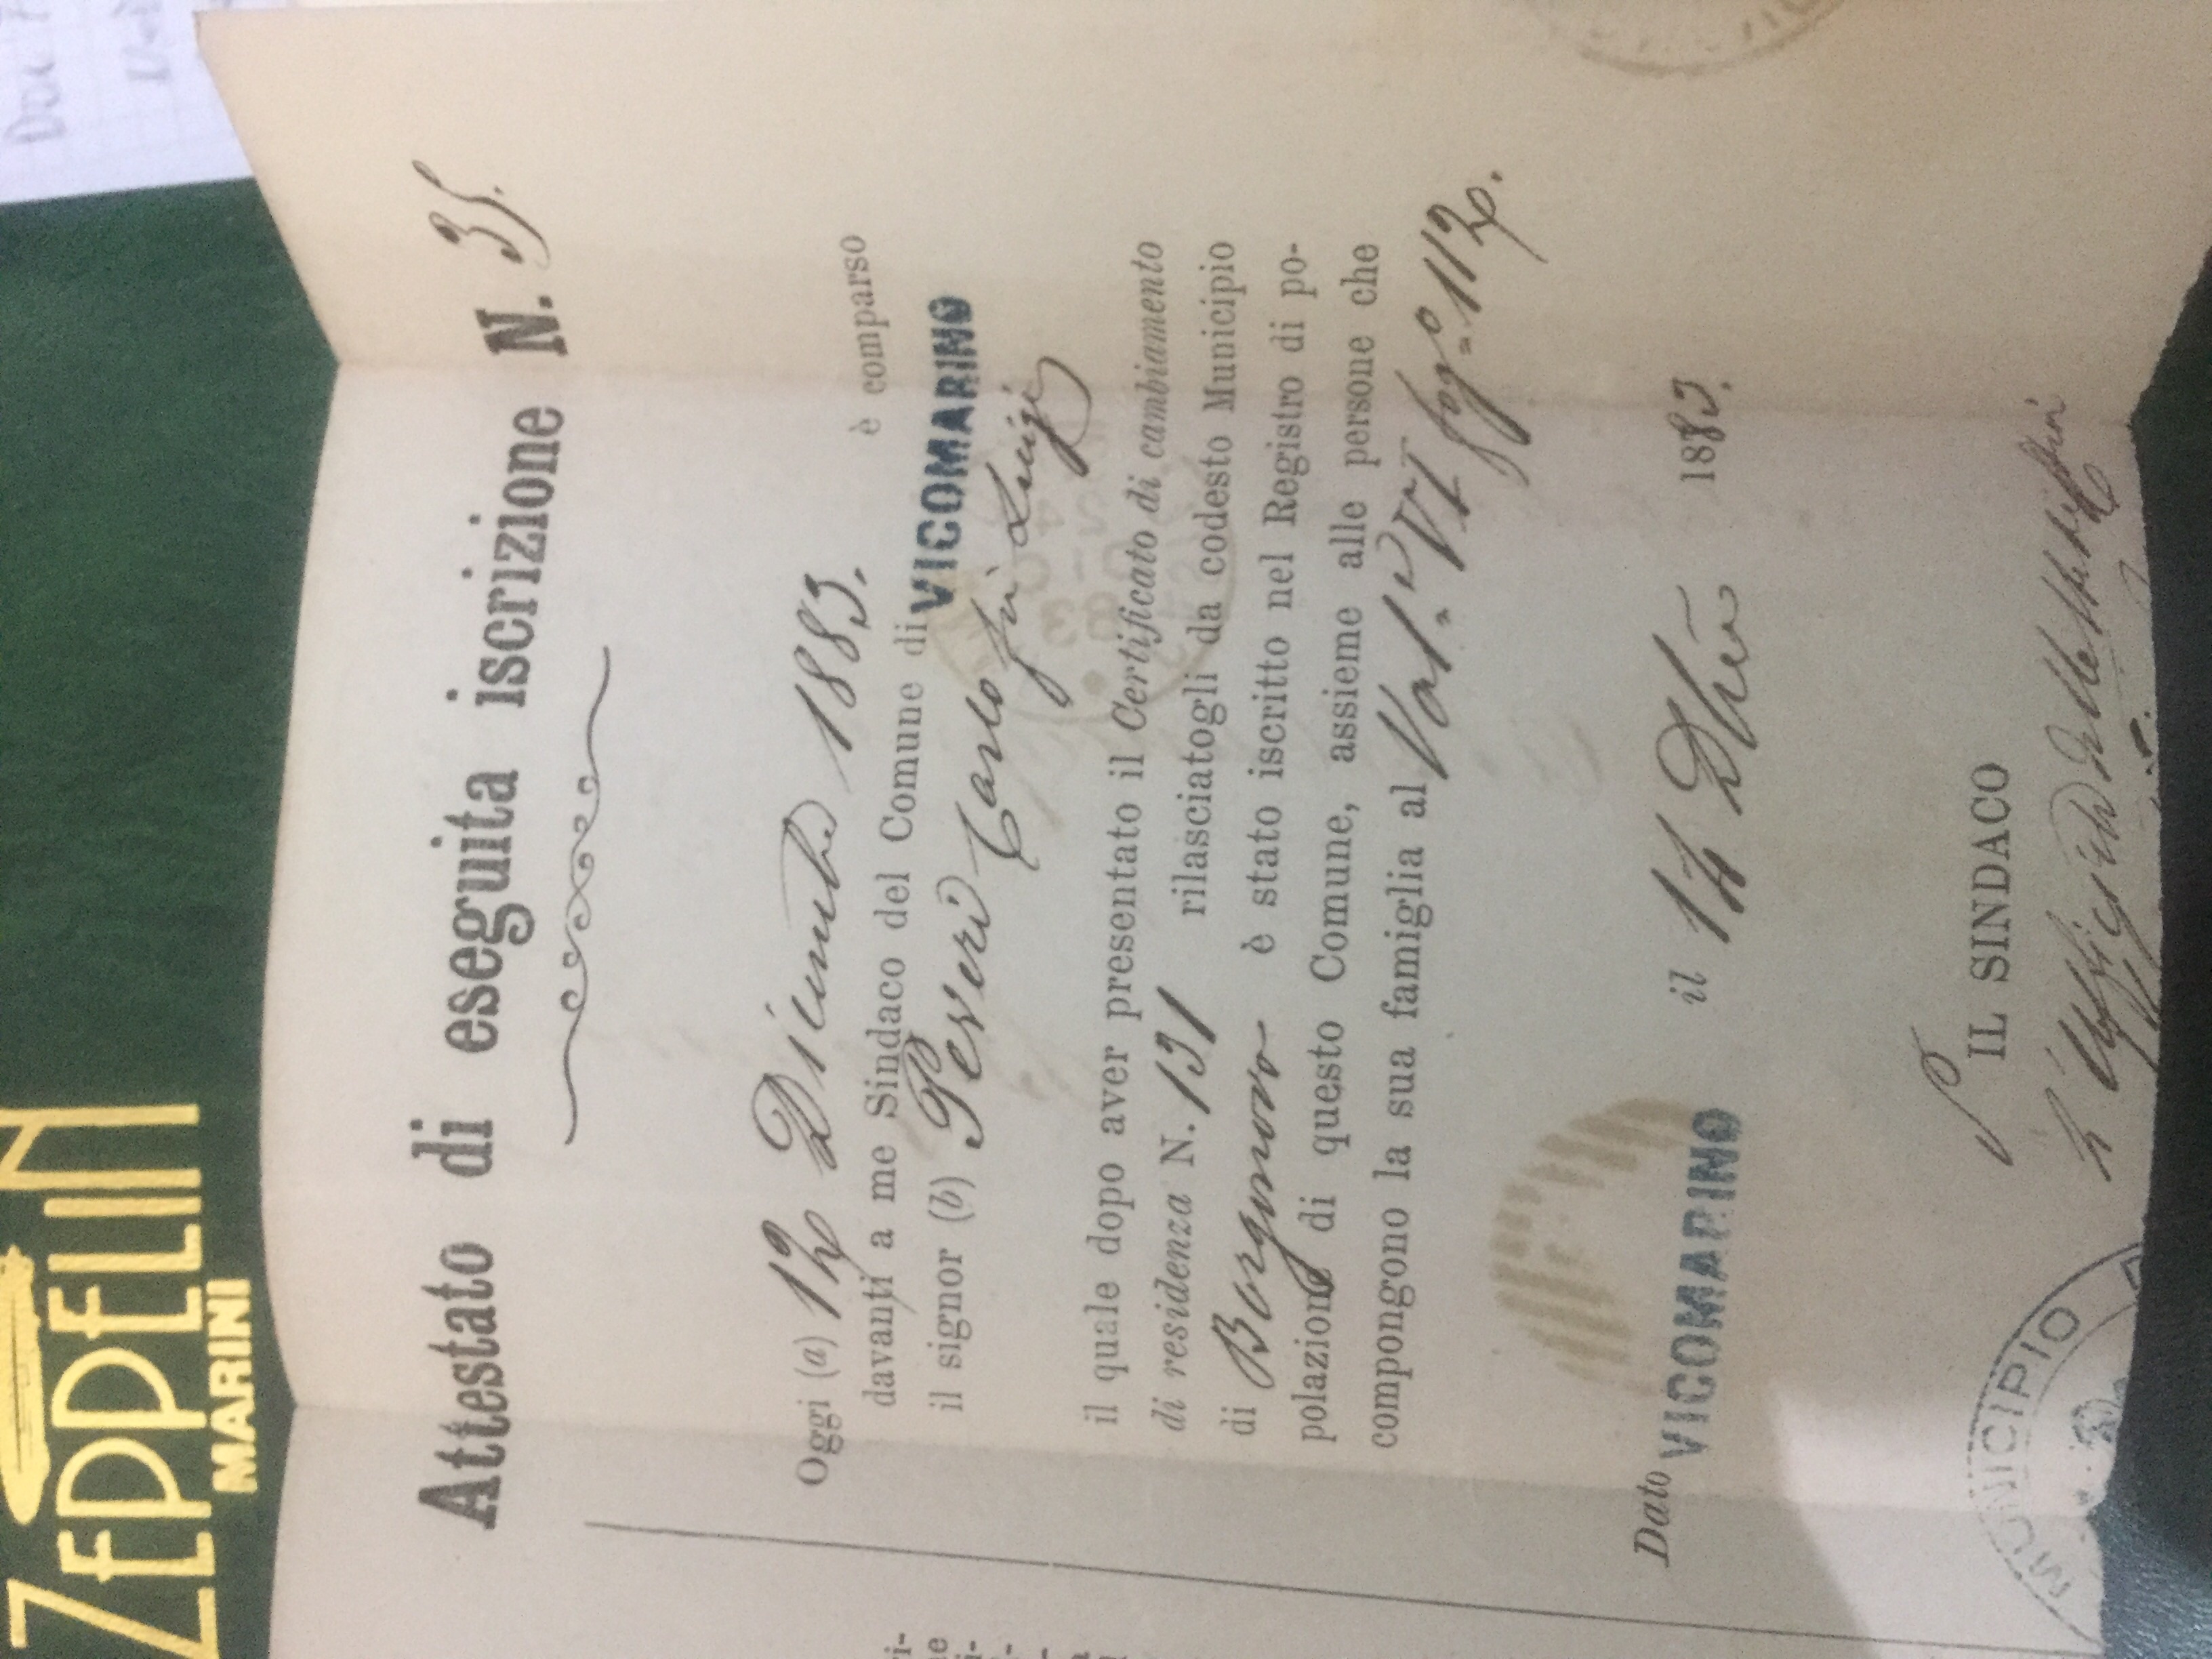 ZEPPELIN
MARINI
Attestato di eseguita iscrizione N. 35.
Oggi (a) 12 Dicembre 1883. è comparso
davanti a me Sindaco del Comune di VICOMARINO
il signor (b) Perseri Carlo fu Luigi
il quale dopo aver presentato il Certificato di cambiamento
di residenza N. 131 rilasciatogli da codesto Municipio
di Borgonovo è stato iscritto nel Registro di po-
polazione di questo Comune, assieme alle persone che
compongono la sua famiglia al Vol.e VI fogo. 112.
Dato VICOMARINO il 14 Dbre 1883.
IL SINDACO
L'Uffici
MUNICIPIO